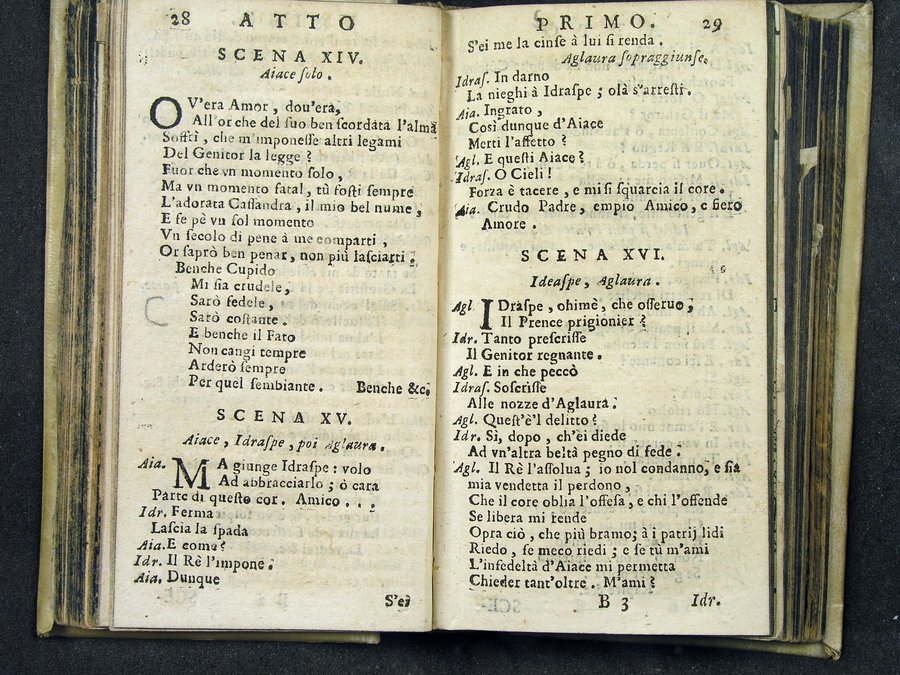 28 ATTO
SCENA XIV.
Aiace ſolo.
OV'era Amor, dou'era,
All'or che del ſuo ben ſcordata l'alma
Soffrì, che m'imponeſſe altri legami
Del Genitor la legge?
Fuor che vn momento ſolo,
Ma vn momento fatal, tù foſti ſempre
L'adorata Caſſandra, il mio bel nume,
E ſe pè vn ſol momento
Vn ſecolo di pene à me comparti,
Or ſaprò ben penar, non più laſciarti.
Benche Cupido
Mi ſia crudele,
Sarò fedele,
Sarò coſtante.
E benche il Fato
Non cangi tempre
Arderò ſempre
Per quel ſembiante. Benche &c.
SCENA XV.
Aiace, Idraſpe, poi Aglaura.
Aia. MA giunge Idraſpe: volo
Ad abbracciarlo; ò cara
Parte di queſto cor. Amico...
Idr. Ferma
Laſcia la ſpada
Aia. E come?
Idr. Il Rè l'impone.
Aia. Dunque
S'ei
PRIMO. 29
S'ei me la cinſe à lui ſi renda.
Aglaura ſopraggiunſe.
Idraſ. In darno
La nieghi à Idraſpe; olà s'arreſti.
Aia. Ingrato,
Così dunque d'Aiace
Merti l'affetto?
Agl. E queſti Aiace?
Idraſ. O Cieli!
Forza è tacere, e mi ſi ſquarcia il core.
Aia. Crudo Padre, empio Amico, e fiero
Amore.
SCENA XVI.
Ideaſpe, Aglaura.
Agl IDraſpe, ohimè, che oſſeruo;
Il Prence prigionier?
Idr. Tanto preſcriſſe
Il Genitor regnante.
Agl. E in che peccò
Idraſ. Soſcriſſe
Alle nozze d'Aglaura.
Agl. Queſt'è'l delitto?
Idr. Sì, dopo, ch'ei diede
Ad vn'altra beltà pegno di fede.
Agl. Il Rè l'aſſolua; io nol condanno, e ſia
mia vendetta il perdono,
Che il core oblia l'offeſa, e chi l'offende
Se libera mi rende
Opra ciò, che più bramo; à i patrij lidi
Riedo, ſe meco riedi; e ſe tù m'ami
L'infedeltà d'Aiace mi permetta
Chieder tant'oltre. M'ami?
B 3 Idr.